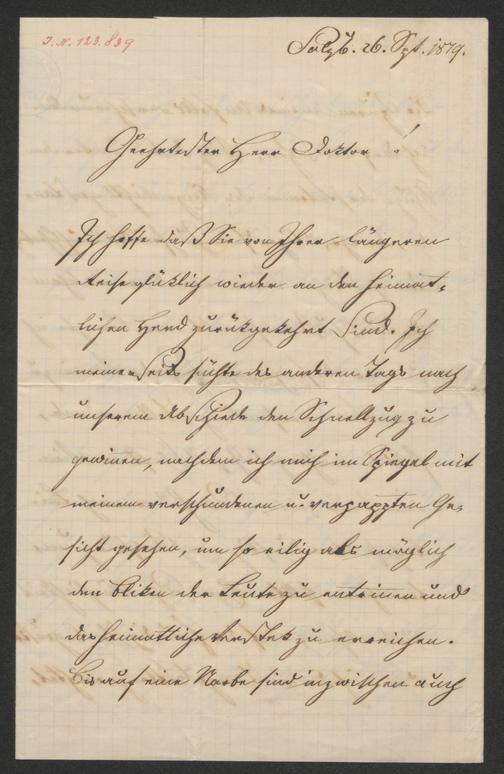 I. N. 123.839
Salzb. 26. Spt. 1879.
Geehrtester Herr Doktor!
Ich hoffe daß Sie von Ihrer längeren
Reise glücklich wieder an den heimat-
lichen Herd zurükgekehrt sind. Ich
meinerseits suchte des anderen Tags nach
unserem Abschiede den Schnellzug zu
gewinen, nachdem ich mich im Spiegel mit
meinem verschundenen u. verpappten Ge-
sicht gesehen, um so eilig als möglich
den Bliken der Leute zu entrinen und
das heimatliche Verstek zu erreichen.
Bis auf eine Narbe sind inzwischen auch